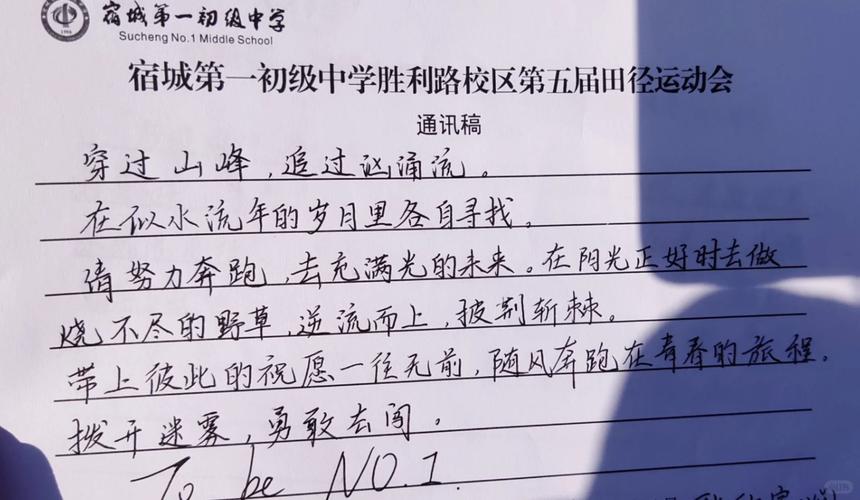 宿城第一初级中学
Sucheng No.1 Middle School
宿城第一初级中学胜利路校区第五届田径运动会
通讯稿
穿过山峰,追过汹涌流。
在似水流年的岁月里各自寻找。
请努力奔跑,去充满光的未来。在阳光正好时去做
烧不尽的野草,逆流而上,披荆斩棘。
带上彼此的祝愿一往无前,随风奔跑在青春的旅程。
拨开迷雾,勇敢去闯。
To be NO.1.